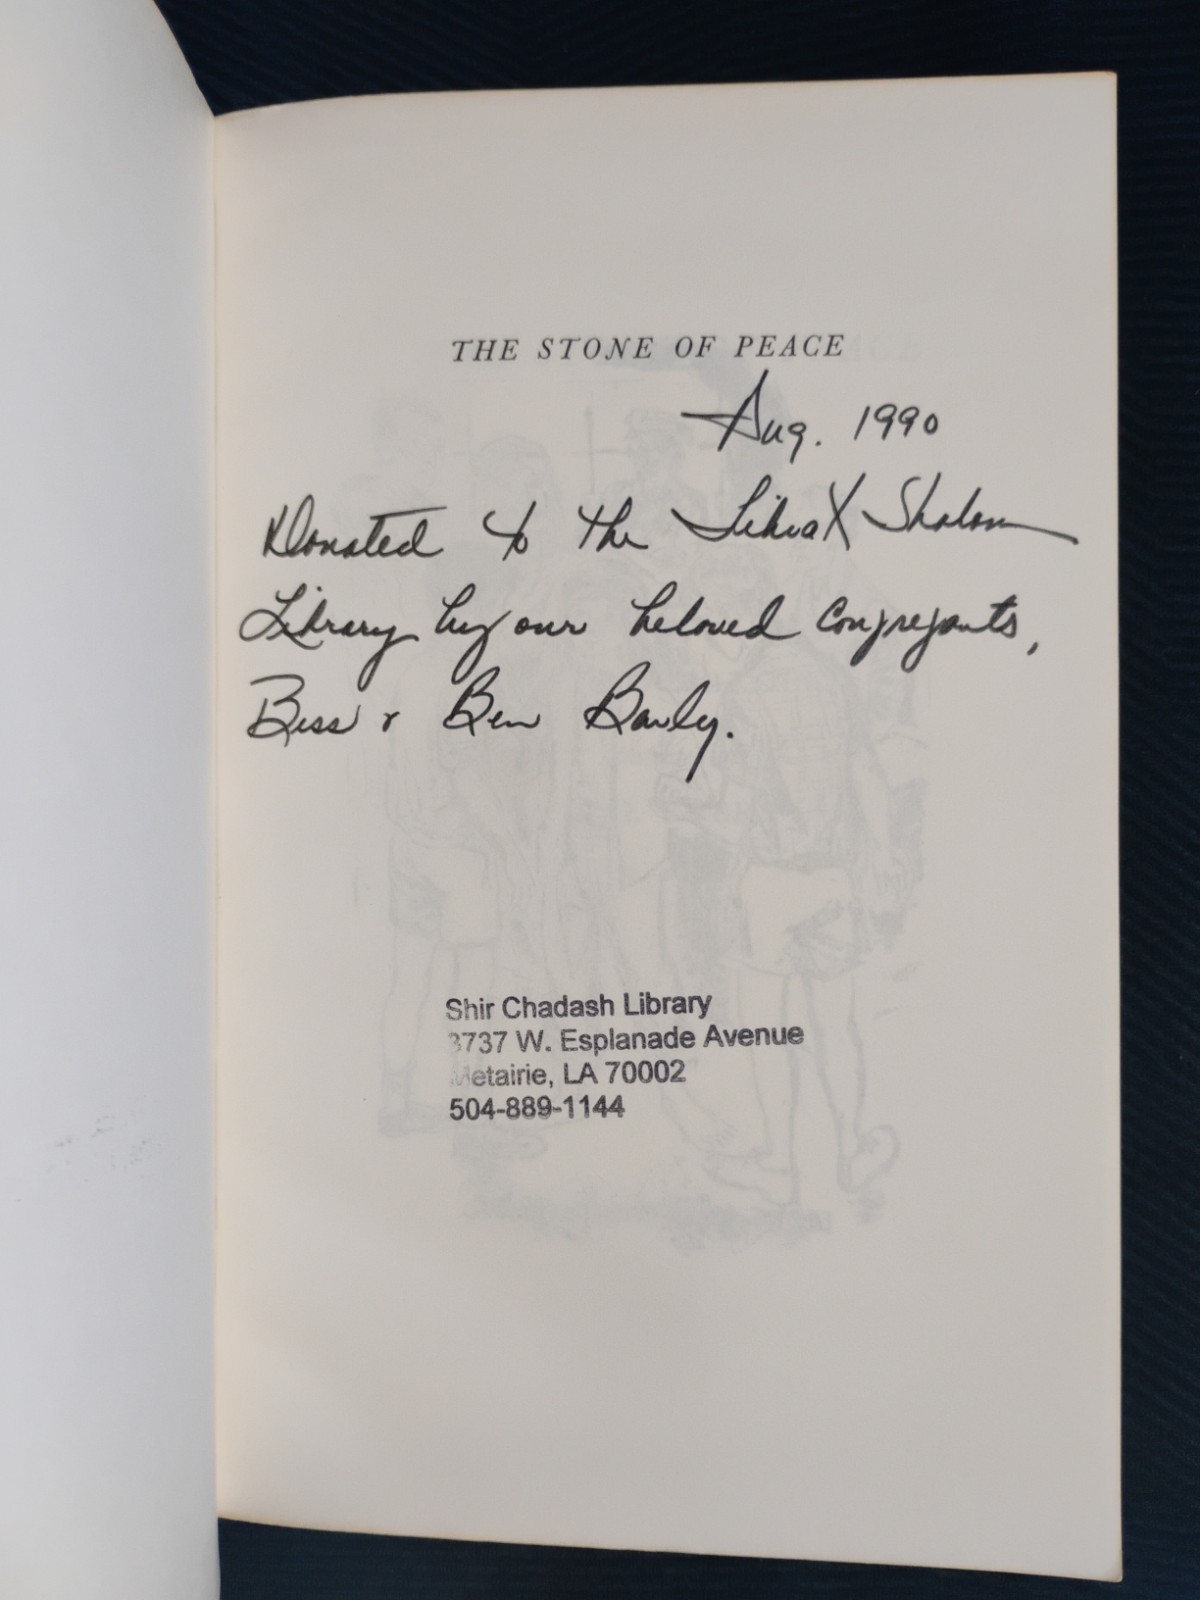 THE STONE OF PEACE
Aug. 1990
Donated to the Tikvat Shalom
Library by our beloved congregants,
Bess & Ben Barly.
Shir Chadash Library
3737 W. Esplanade Avenue
Metairie, LA 70002
504-889-1144